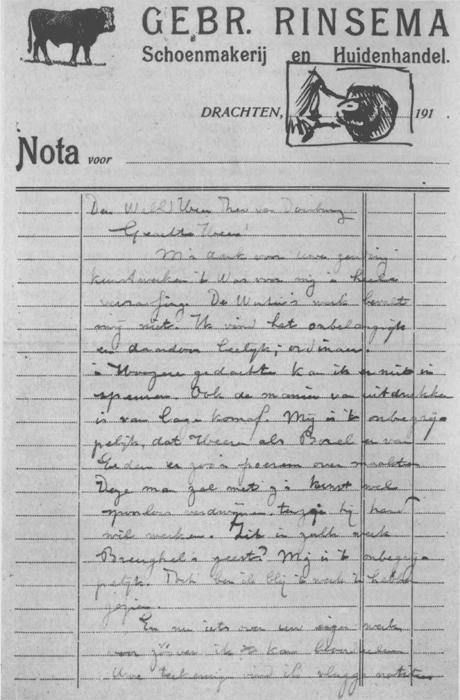 GEBR. RINSEMA
Schoenmakerij en Huidenhandel.
DRACHTEN, 191
Nota voor
Den Heer Theo van Doesburg
Geachte Heer!
M'n dank voor uwe zending
kunstwerken 't Was voor mij 'n heele
verrassing. De werk bevalt
mij niet. Ik vind het onbelangrijk
en daardoor leelijk; ordinair.
'n Hoogere gedachte kan ik er niet in
speuren. Ook de manier van uitdrukken
is van lage komaf. Mij is 't onbegrij-
pelijk, dat Heeren als Borel en van
Eeden er zoo'n poeram over maakten
Deze man zal met z'n kunst wel
spoorloos verdwijnen, tenzij hij hard
wil werken. Zit in zulk werk
Breughel's geest? Mij is 't onbegrij-
pelijk. Toch ben ik blij 't werk te hebben
gezien.
En nu iets over uw eigen werk
voor zoover ik kan
Uwe teekening vind ik vlugge